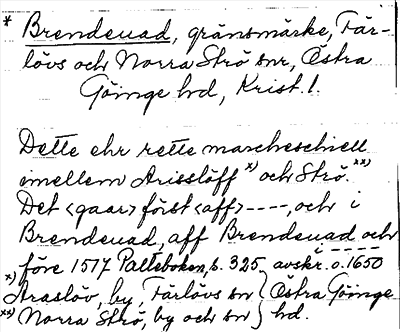 * Brendeuad, gränsmärke, Fär-
lövs och Norra Strö snr, Östra
Göinge hd, Krist. l.
Dette ehr rette marcheschiell
imellem Arisslöff x) och Strö. xx)
Det <gaar> först <aff> ----, och i
Brendeuad, aff Brendeuad och
före 1517 Palteboken, s. 325, avskr. o. 1650
x) Araslöv, by, Färlövs sn } Östra Göinge
xx) Norra Strö, by och sn } hd.